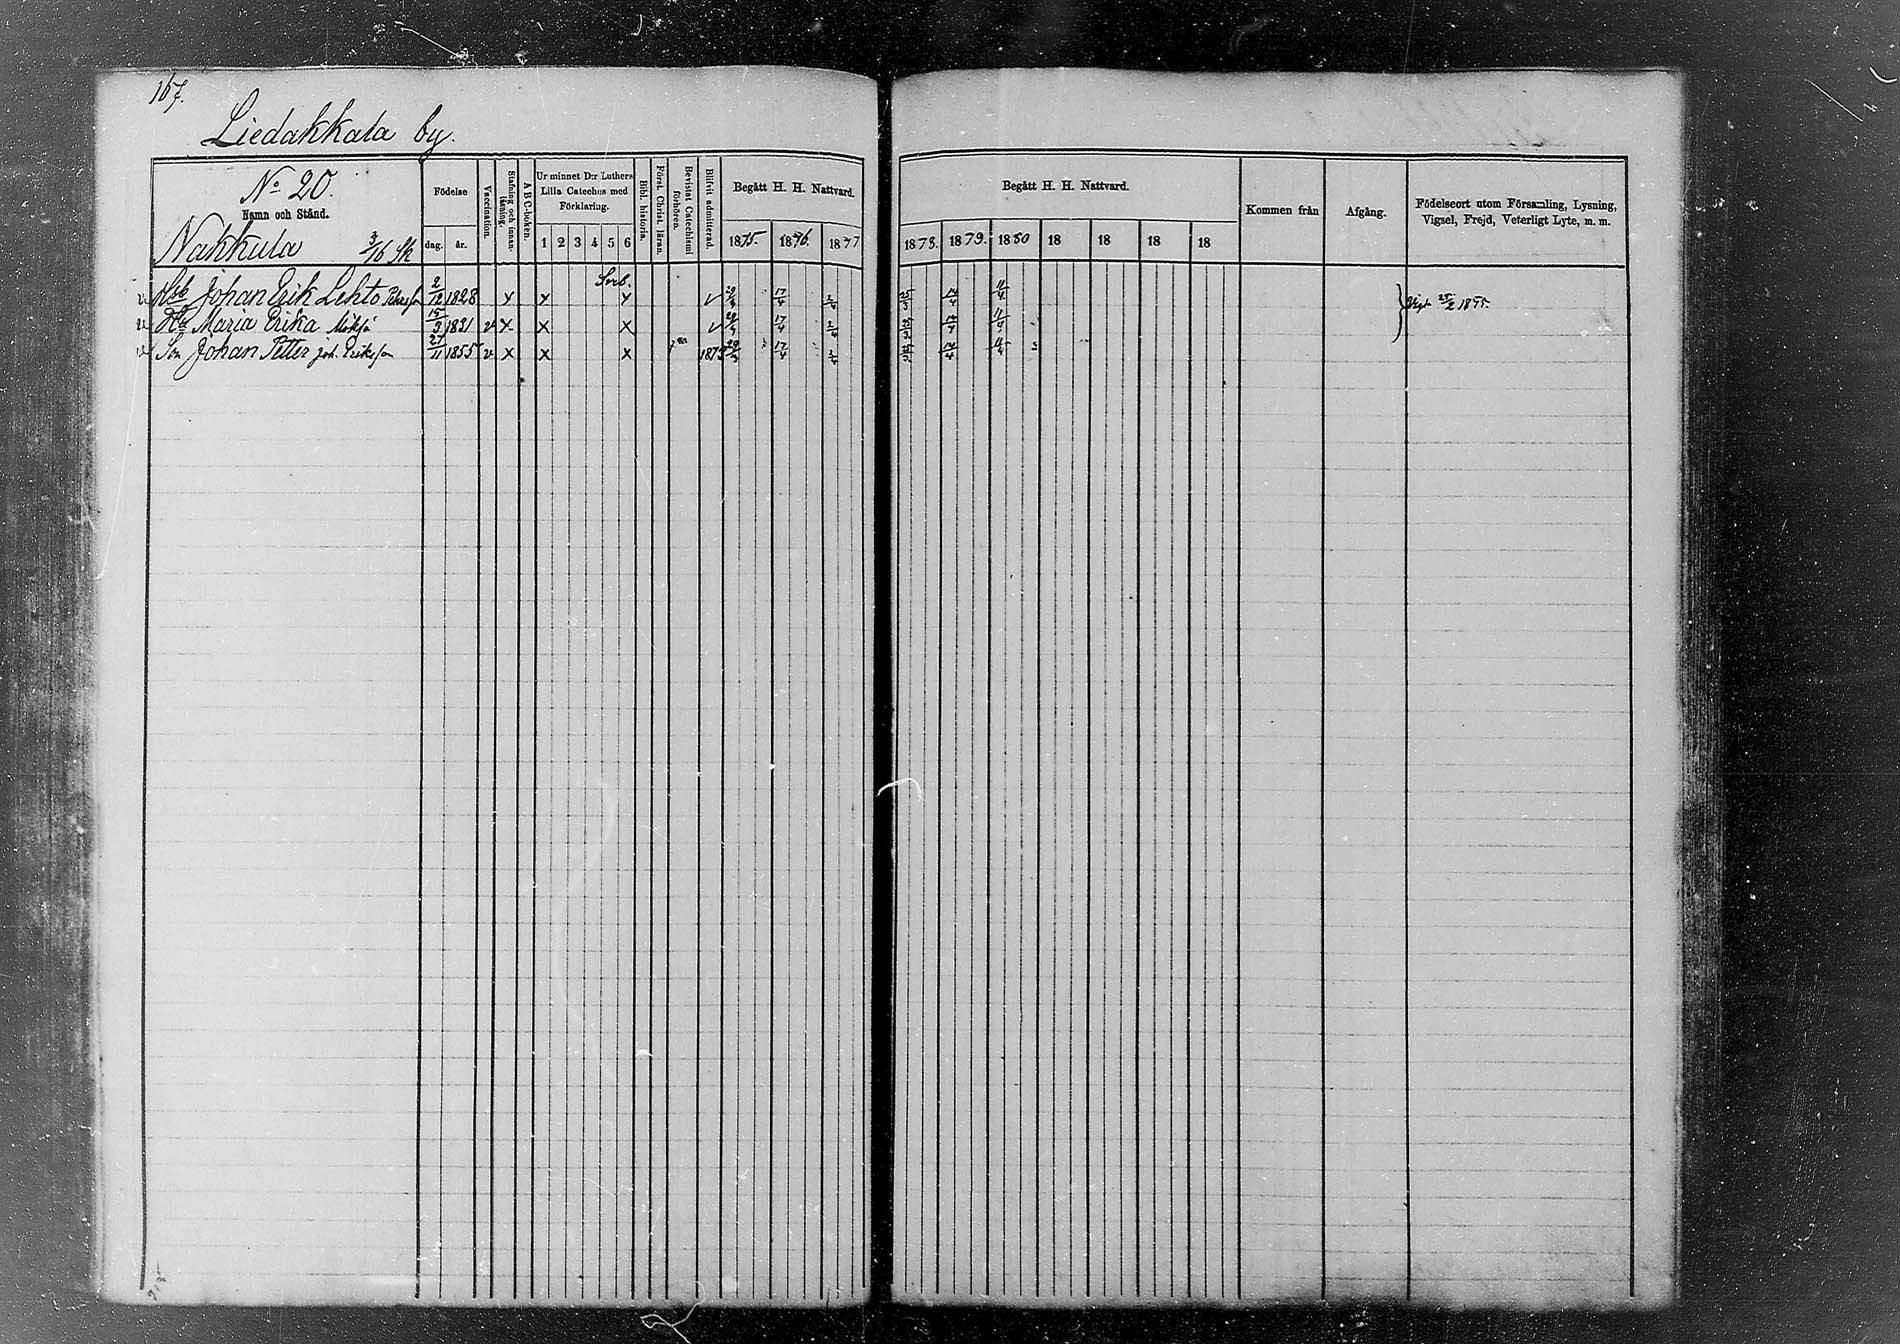 167.
Liedakkala by.
No 20.
Namn och Stånd.
Nakkula 3/16 Sk
Födelse
dag. år.
Vaccination.
Stafning och innanläsning.
A B C-boken.
Ur minnet D:r Luthers
Lilla Cateches med
Förklaring.
1 2 3 4 5 6
Bibl. historia.
Först. Christ. läran.
Bevistat Catechismi förhören.
Blifvit admitterad.
Begått H. H. Nattvard.
1875. 1876. 1877
Begått H. H. Nattvard.
1878. 1879. 1880 18 18 18 18
Kommen från
Afgång.
Födelseort utom Församling, Lysning,
Vigsel, Frejd, Veterligt Lyte, m. m.
Svb.
Johan Erik Lehto 2/12 1828 x x x v 17/4 2/4 25/3 14/4 11/4 Vigd 25/2 1855.
Maria Erika 15/3 1831 v x x x v 17/4 2/4 25/3 14/4 11/4
Son Johan Petter Joh. Eriksson 27/11 1855 v x x x 1873 17/4 2/4 25/3 14/4 11/4